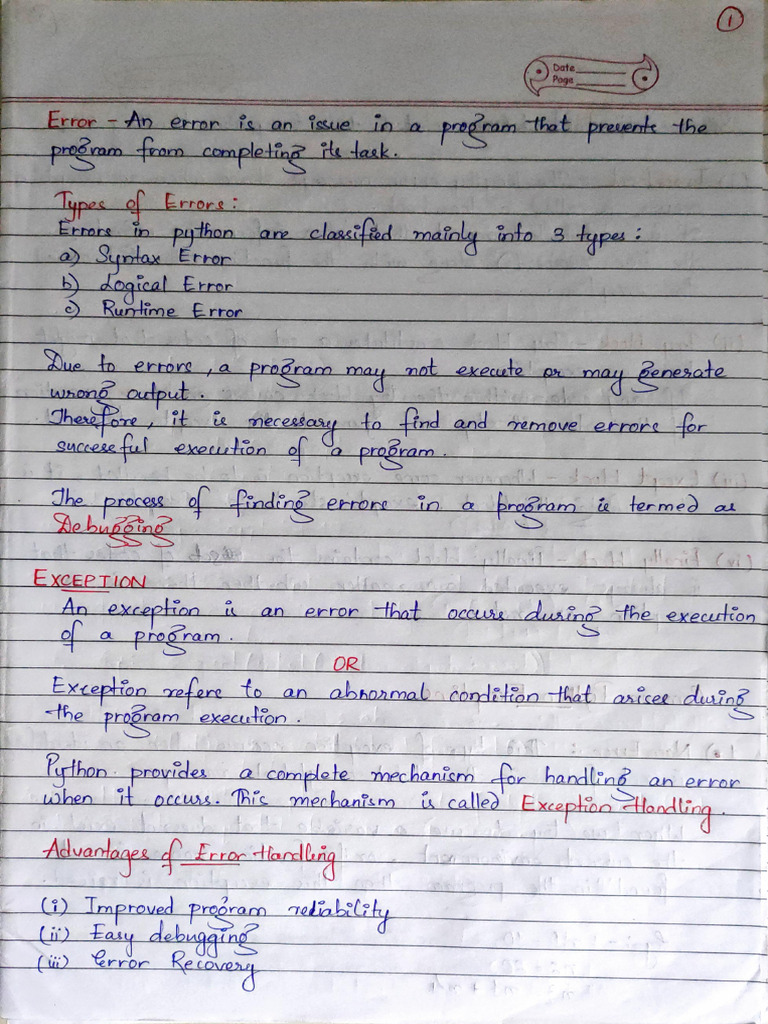 1
Date
Page
Error - An error is an issue in a program that prevents the
program from completing its task.
Types of Errors:
Errors in python are classified mainly into 3 types:
a) Syntax Error
b) Logical Error
c) Runtime Error
Due to errors, a program may not execute or may generate
wrong output.
Therefore, it is necessary to find and remove errors for
successful execution of a program.
The process of finding errors in a program is termed as
Debugging
EXCEPTION
An exception is an error that occurs during the execution
of a program.
OR
Exception refers to an abnormal condition that arises during
the program execution.
Python provides a complete mechanism for handling an error
when it occurs. This mechanism is called Exception Handling.
Advantages of Error Handling
(i) Improved program reliability
(ii) Easy debugging
(iii) Error Recovery